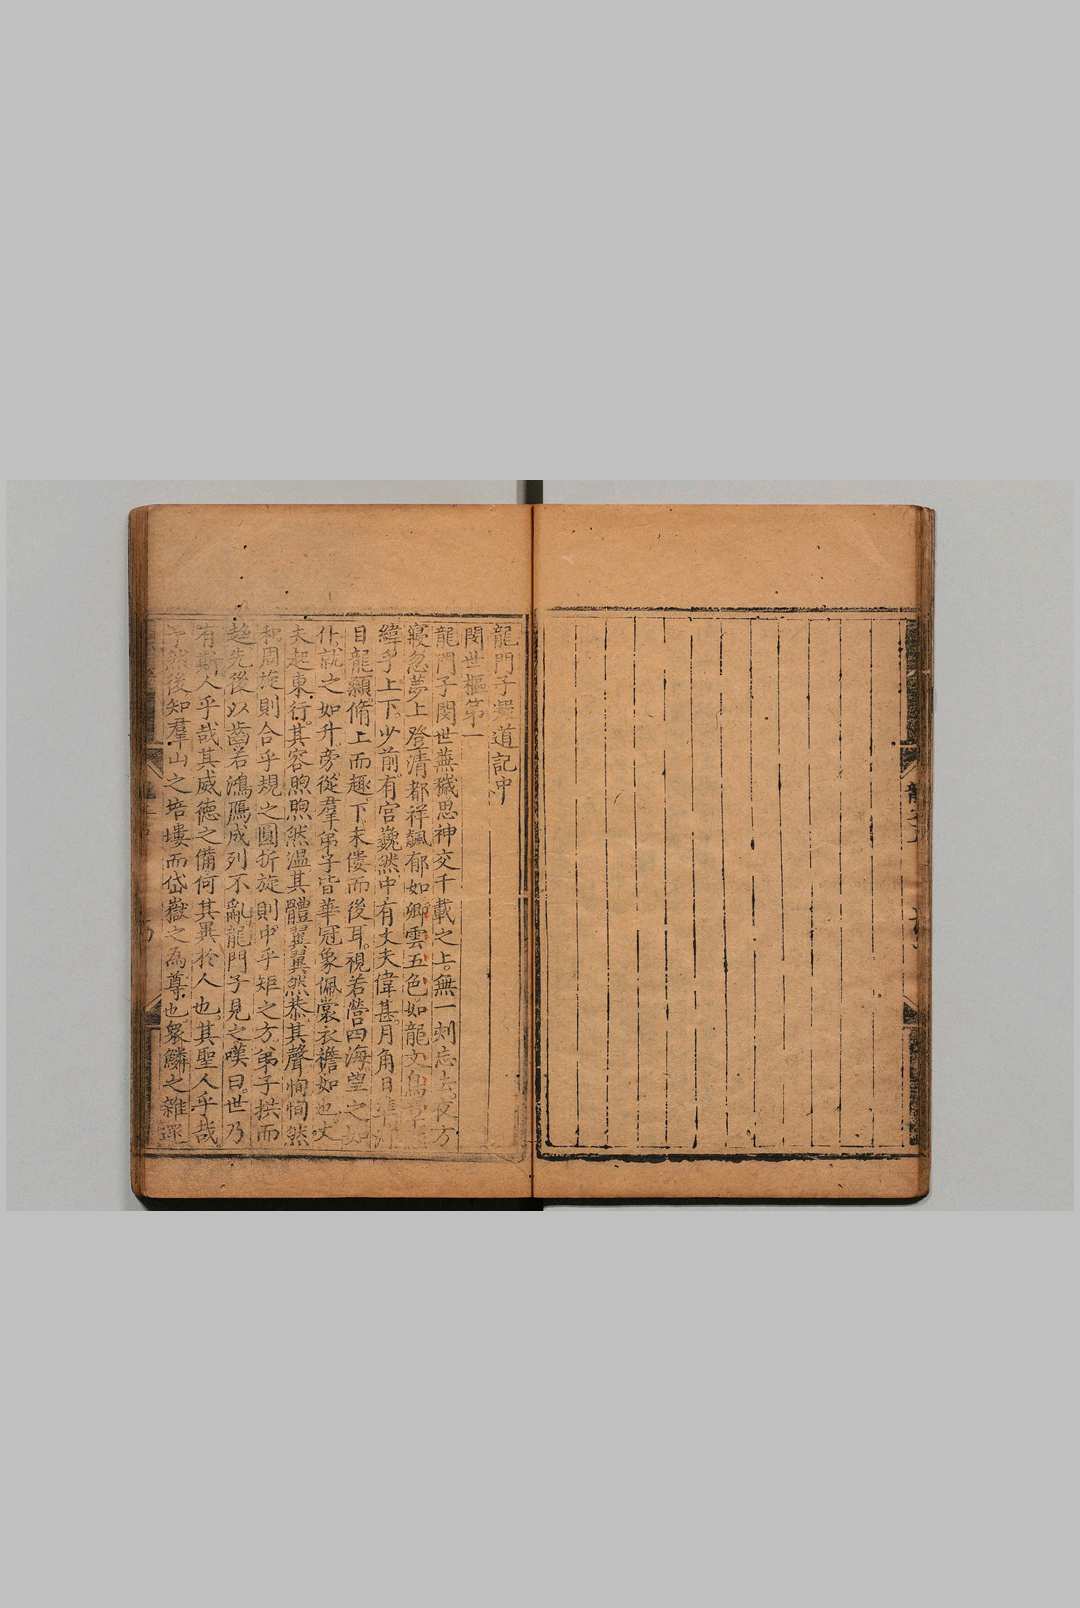 龍門子凝道記中
閔世樞第一
龍門子閔世蕪穢思神交千載之上無一刻忘去夜方
寢忽夢上登清都祥飆郁如卿雲五色如龍文鳥章
緯乎上下少前有宮巍然中有丈夫偉甚月角日準河
目龍顙脩上而趨下末僂而後耳視若營四海望之如
仆就之如升旁從羣弟子皆華冠象佩裳衣襜如也丈
夫起東行其容煦煦然溫其體翼翼然恭其聲恂恂然
和周旋則合乎規之圓折旋則中乎矩之方弟子拱而
趨先後以齒若鴻鴈成列不亂龍門子見之嘆曰世乃
有斯人乎哉其威德之備何其異於人也其聖人乎哉
予然後知羣山之培塿而岱嶽之為尊也衆鱗之雜遝